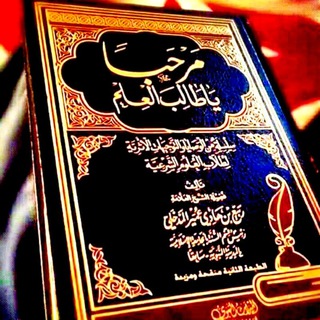 مرحبا
يا طالب العلم
سلسلة من الوصايا والتوجيهات الأثرية
لطلاب العلوم الشرعية
تأليف
فضيلة الشيخ العلامة
ربيع بن هادي عمير المدخلي
رئيس قسم السنة بالجامعة الإسلامية
بالمدينة النبوية - سابقا
الطبعة الثانية منقحة ومزيدة